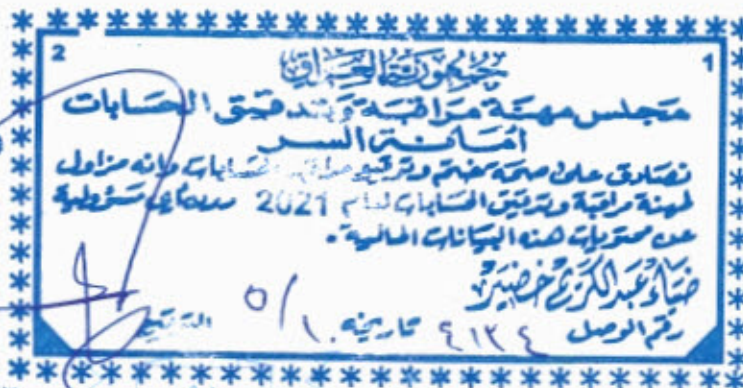 2 1
جمهورية العراق
مجلس مهنة مراقبة وتدقيق الحسابات
أمانة السر
نصادق على صحة ختم وتوقيع مراقب الحسابات وانه مزاول
لمهنة مراقبة وتدقيق الحسابات لعام 2021 دون اي مسؤولية
عن محتويات هذه البيانات المالية.
ضياء عبد الكريم خضير
رقم الوصل ٤١٣٤ تاريخه ٥/١٠ التوقيع